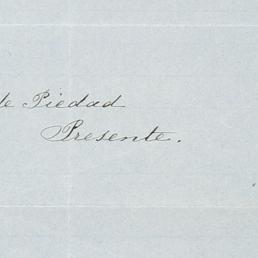 de Piedad
Presente.